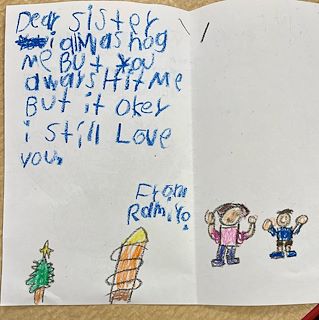 Dear sister
i alwas hog
me But you
awars Hit me
But it oker
i still Love
you,
From
Ramiro.